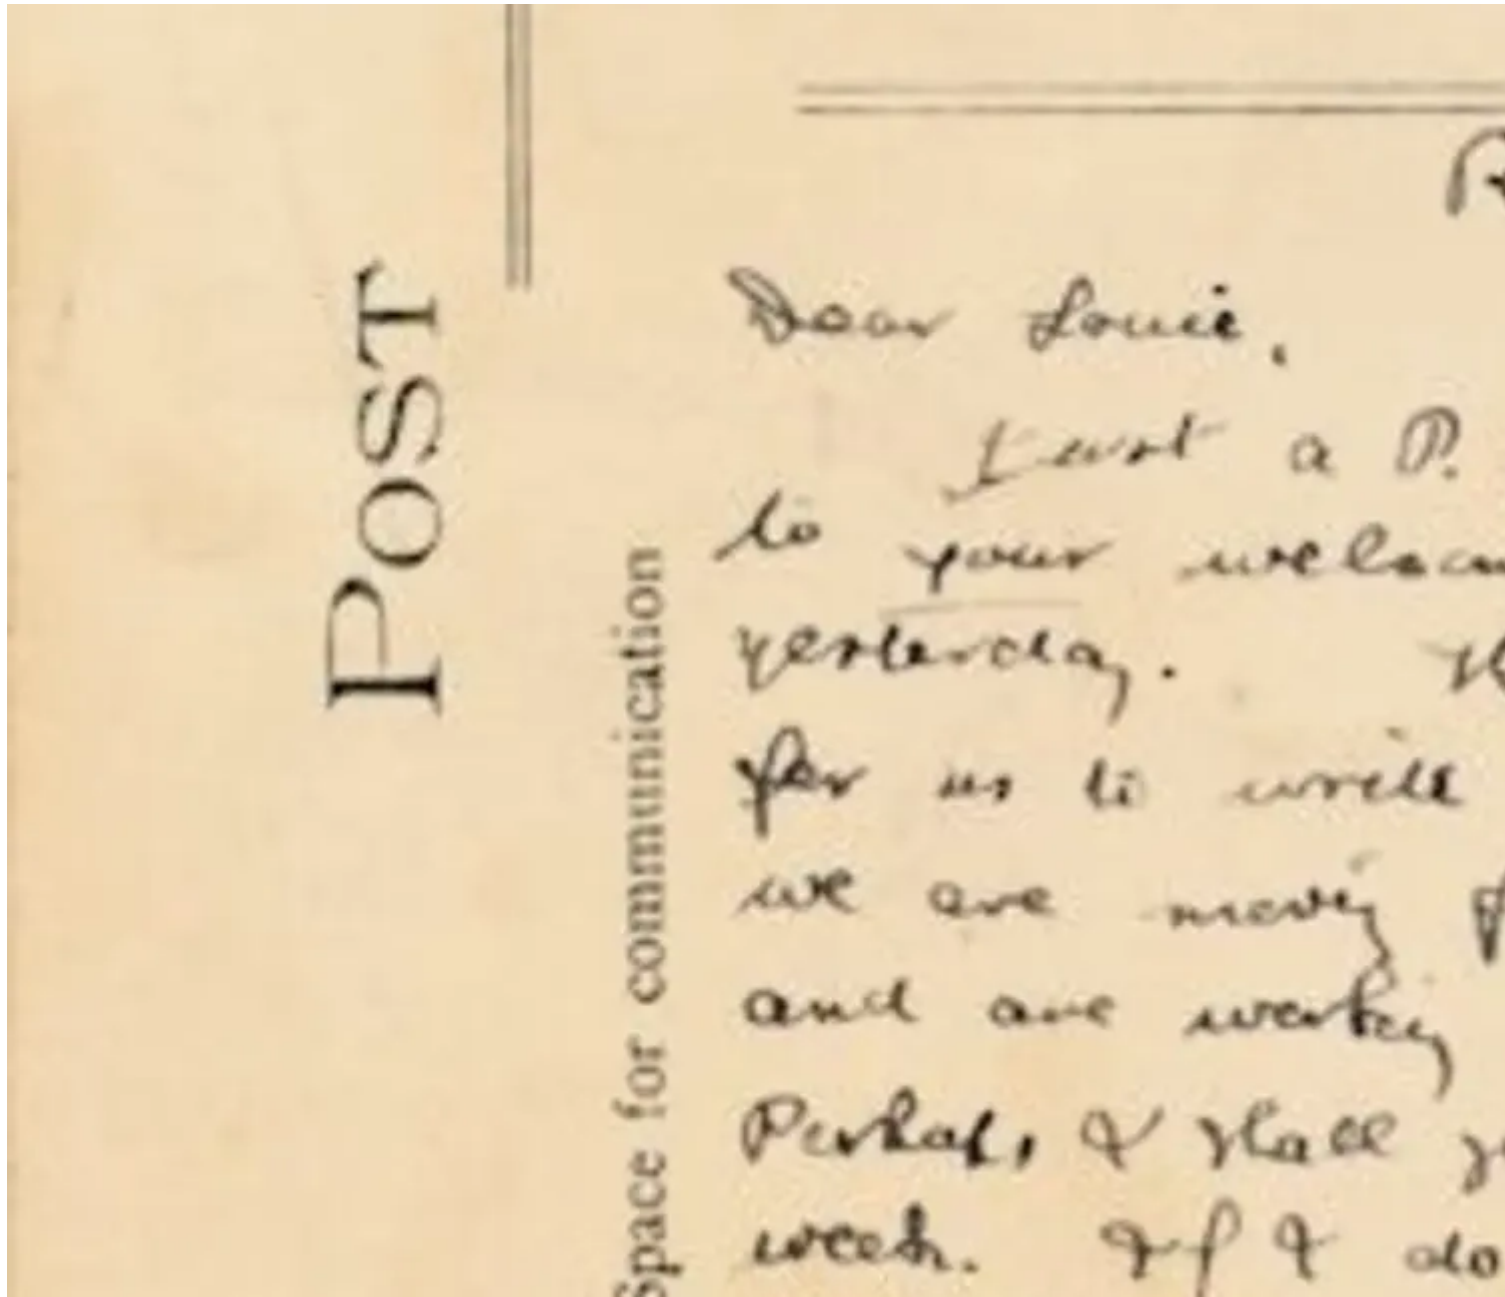 POST
Space for communication
Dear Louie,
Just a P.
to your
yesterday.
for us to write
we are moving
and are working
Perhaps I shall
week. If I do